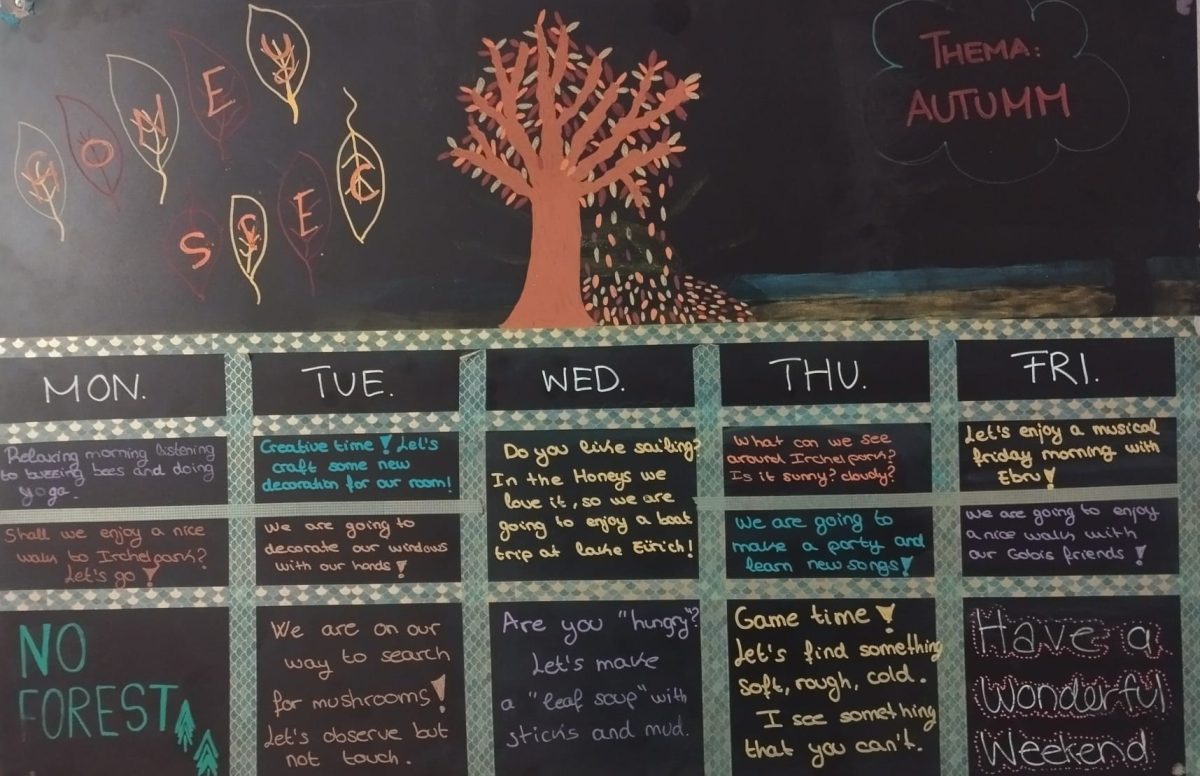 THEMA:
AUTUMM
MON.
TUE.
WED.
THU.
FRI.
Relaxing morning listening
to buzzing bees and doing
yoga.
Creative time! Let's
craft some new
decoration for our room!
Do you like sailing?
In the Honeys we
love it, so we are
going to enjoy a boat
trip at lake Zürich!
What can we see
around Irchelpark?
Is it sunny? cloudy?
Let's enjoy a musical
friday morning with
Ebru!
Shall we enjoy a nice
walk to Irchelpark?
Let's go!
We are going to
decorate our windows
with our hands!
We are going to
make a party and
learn new songs!
We are going to enjoy
a nice walk with
our friends!
NO
FOREST
We are on our
way to search
for mushrooms!
Let's observe but
not touch.
Are you "hungry"?
Let's make
a "leaf soup" with
sticks and mud.
Game time!
Let's find something
soft, rough, cold.
I see something
that you can't.
Have a
Wonderful
Weekend